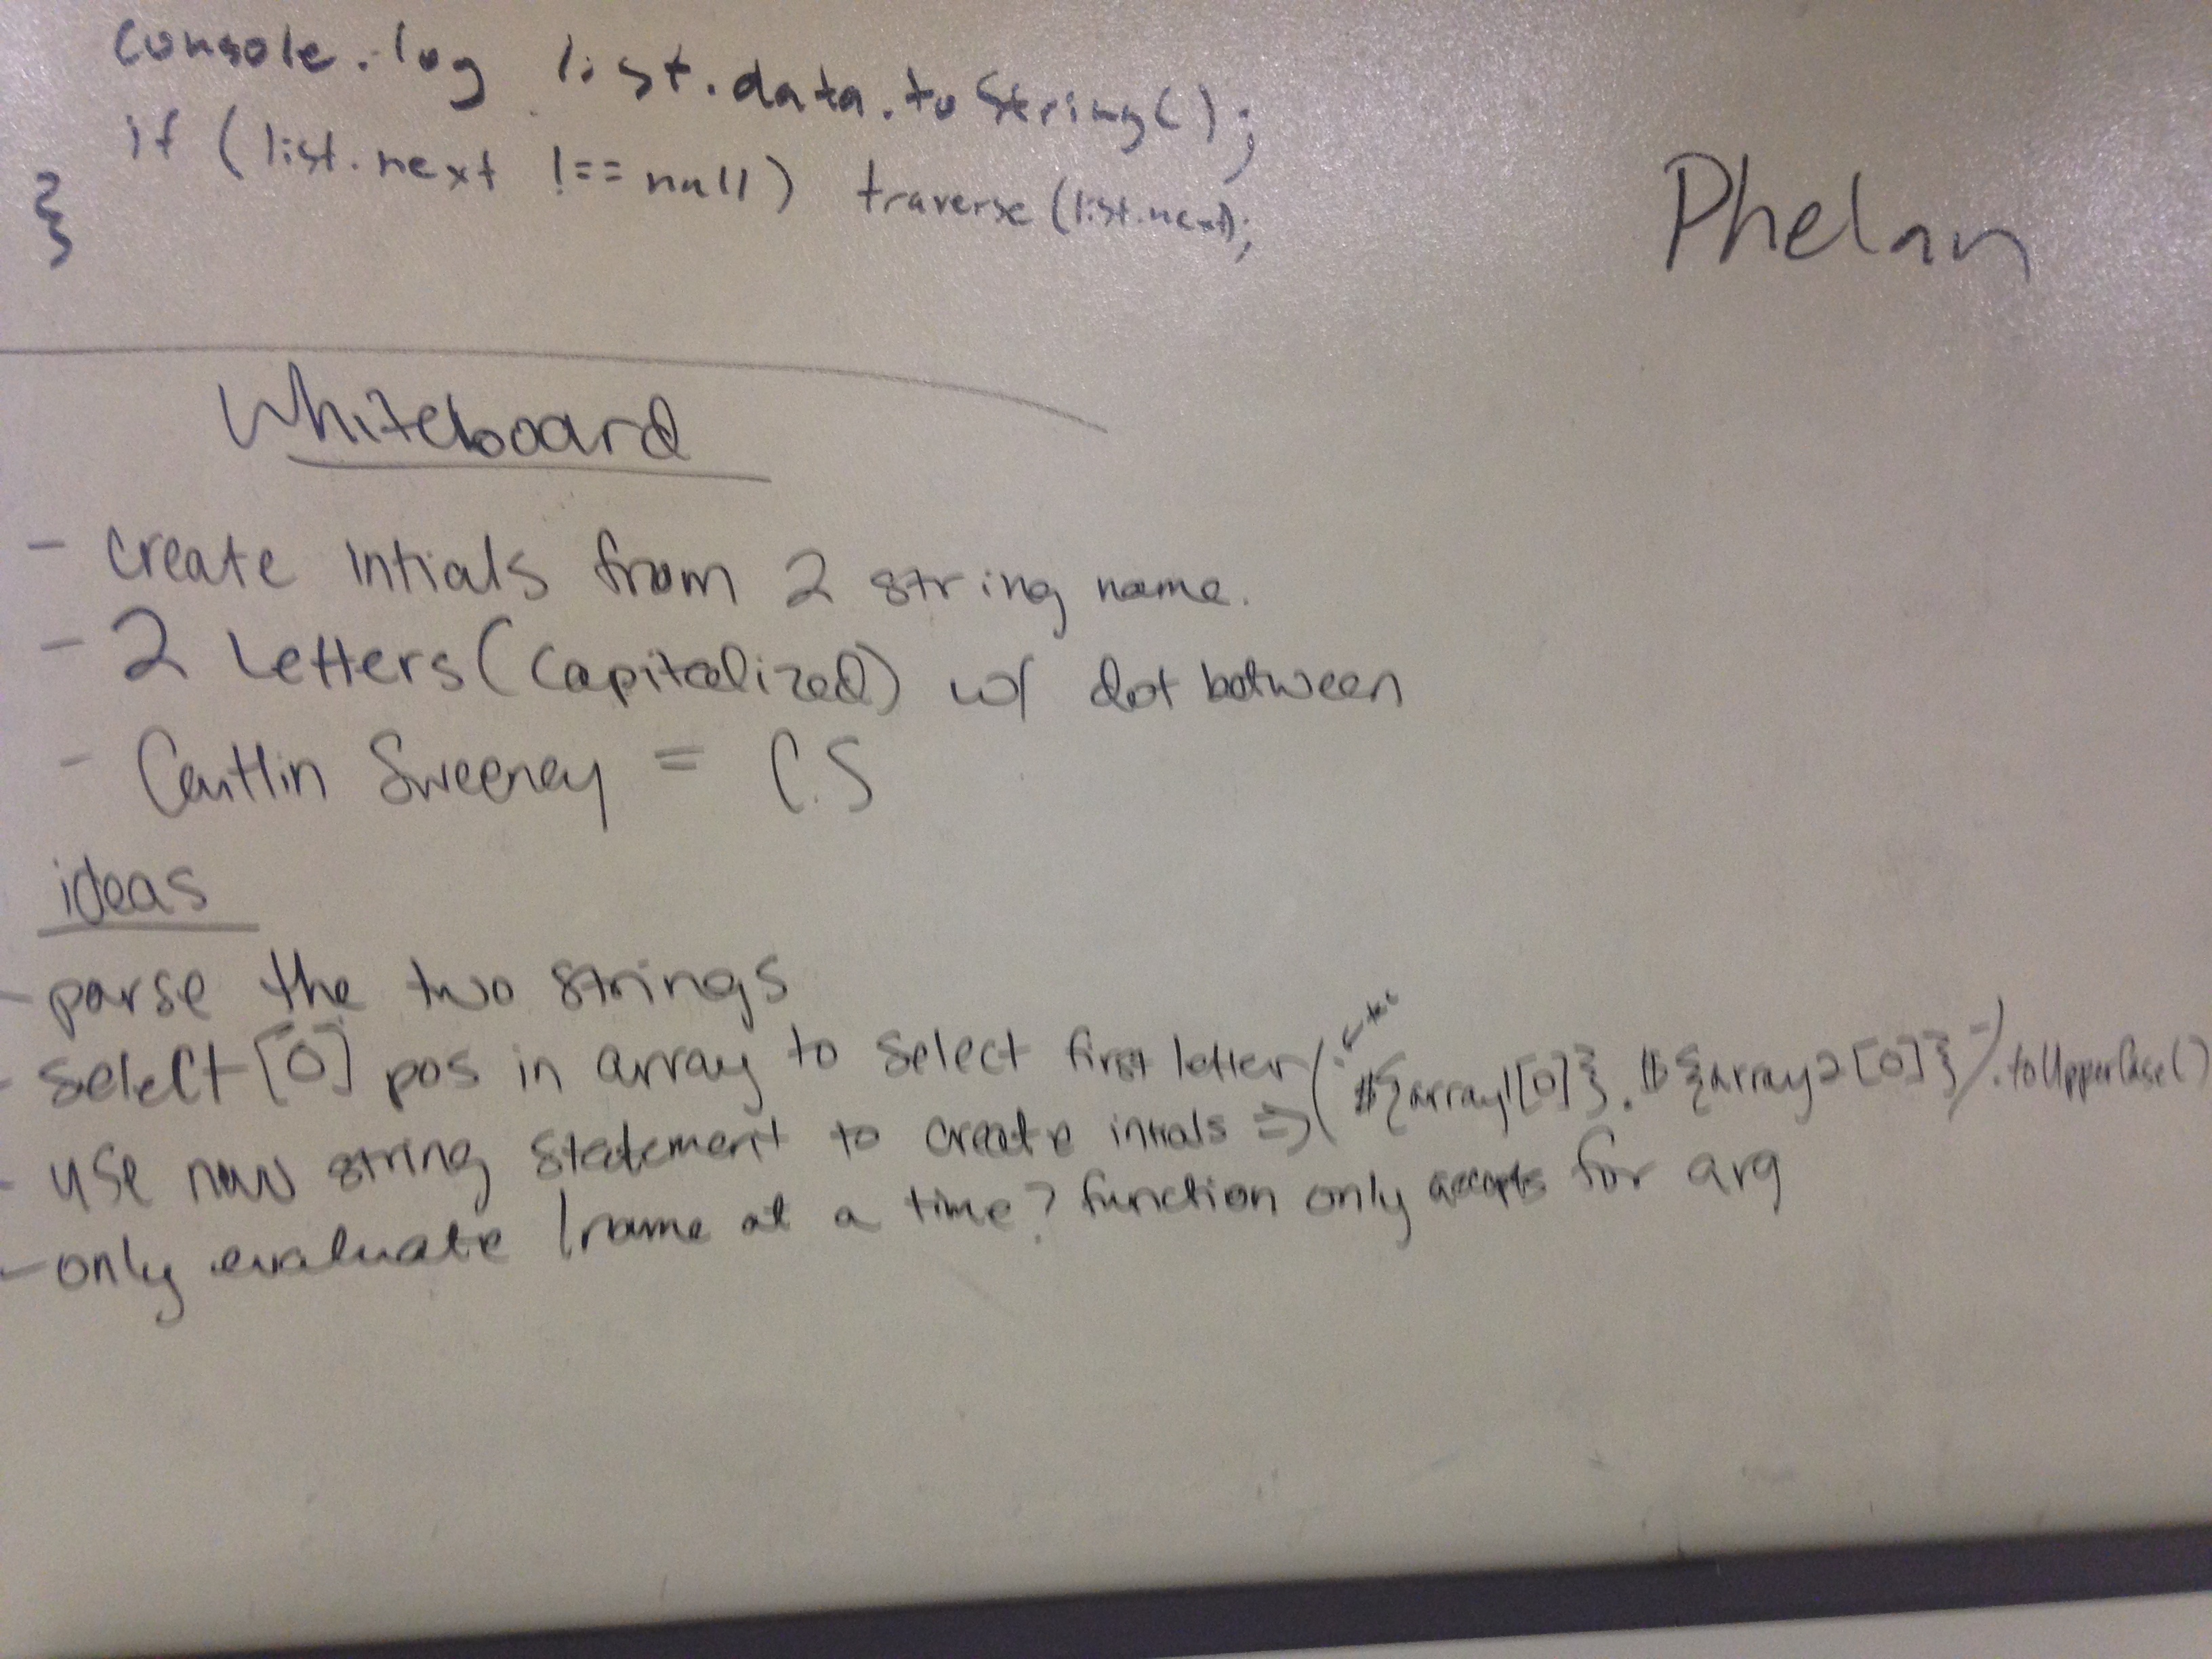 console.log list.data.toString();
if (list.next !== null) traverse (list.next);
}
Phelan
Whiteboard
- create intials from 2 string name.
- 2 Letters (capitalized) w/ dot between
- Caitlin Sweeney = C.S
ideas
- parse the two strings
- select [0] pos in array to select first letter
- use new string statement to create intials => (` ${array1[0]}.${array2[0]}`).toUpperCase()
- only evaluate 1 name at a time? function only accepts for arg